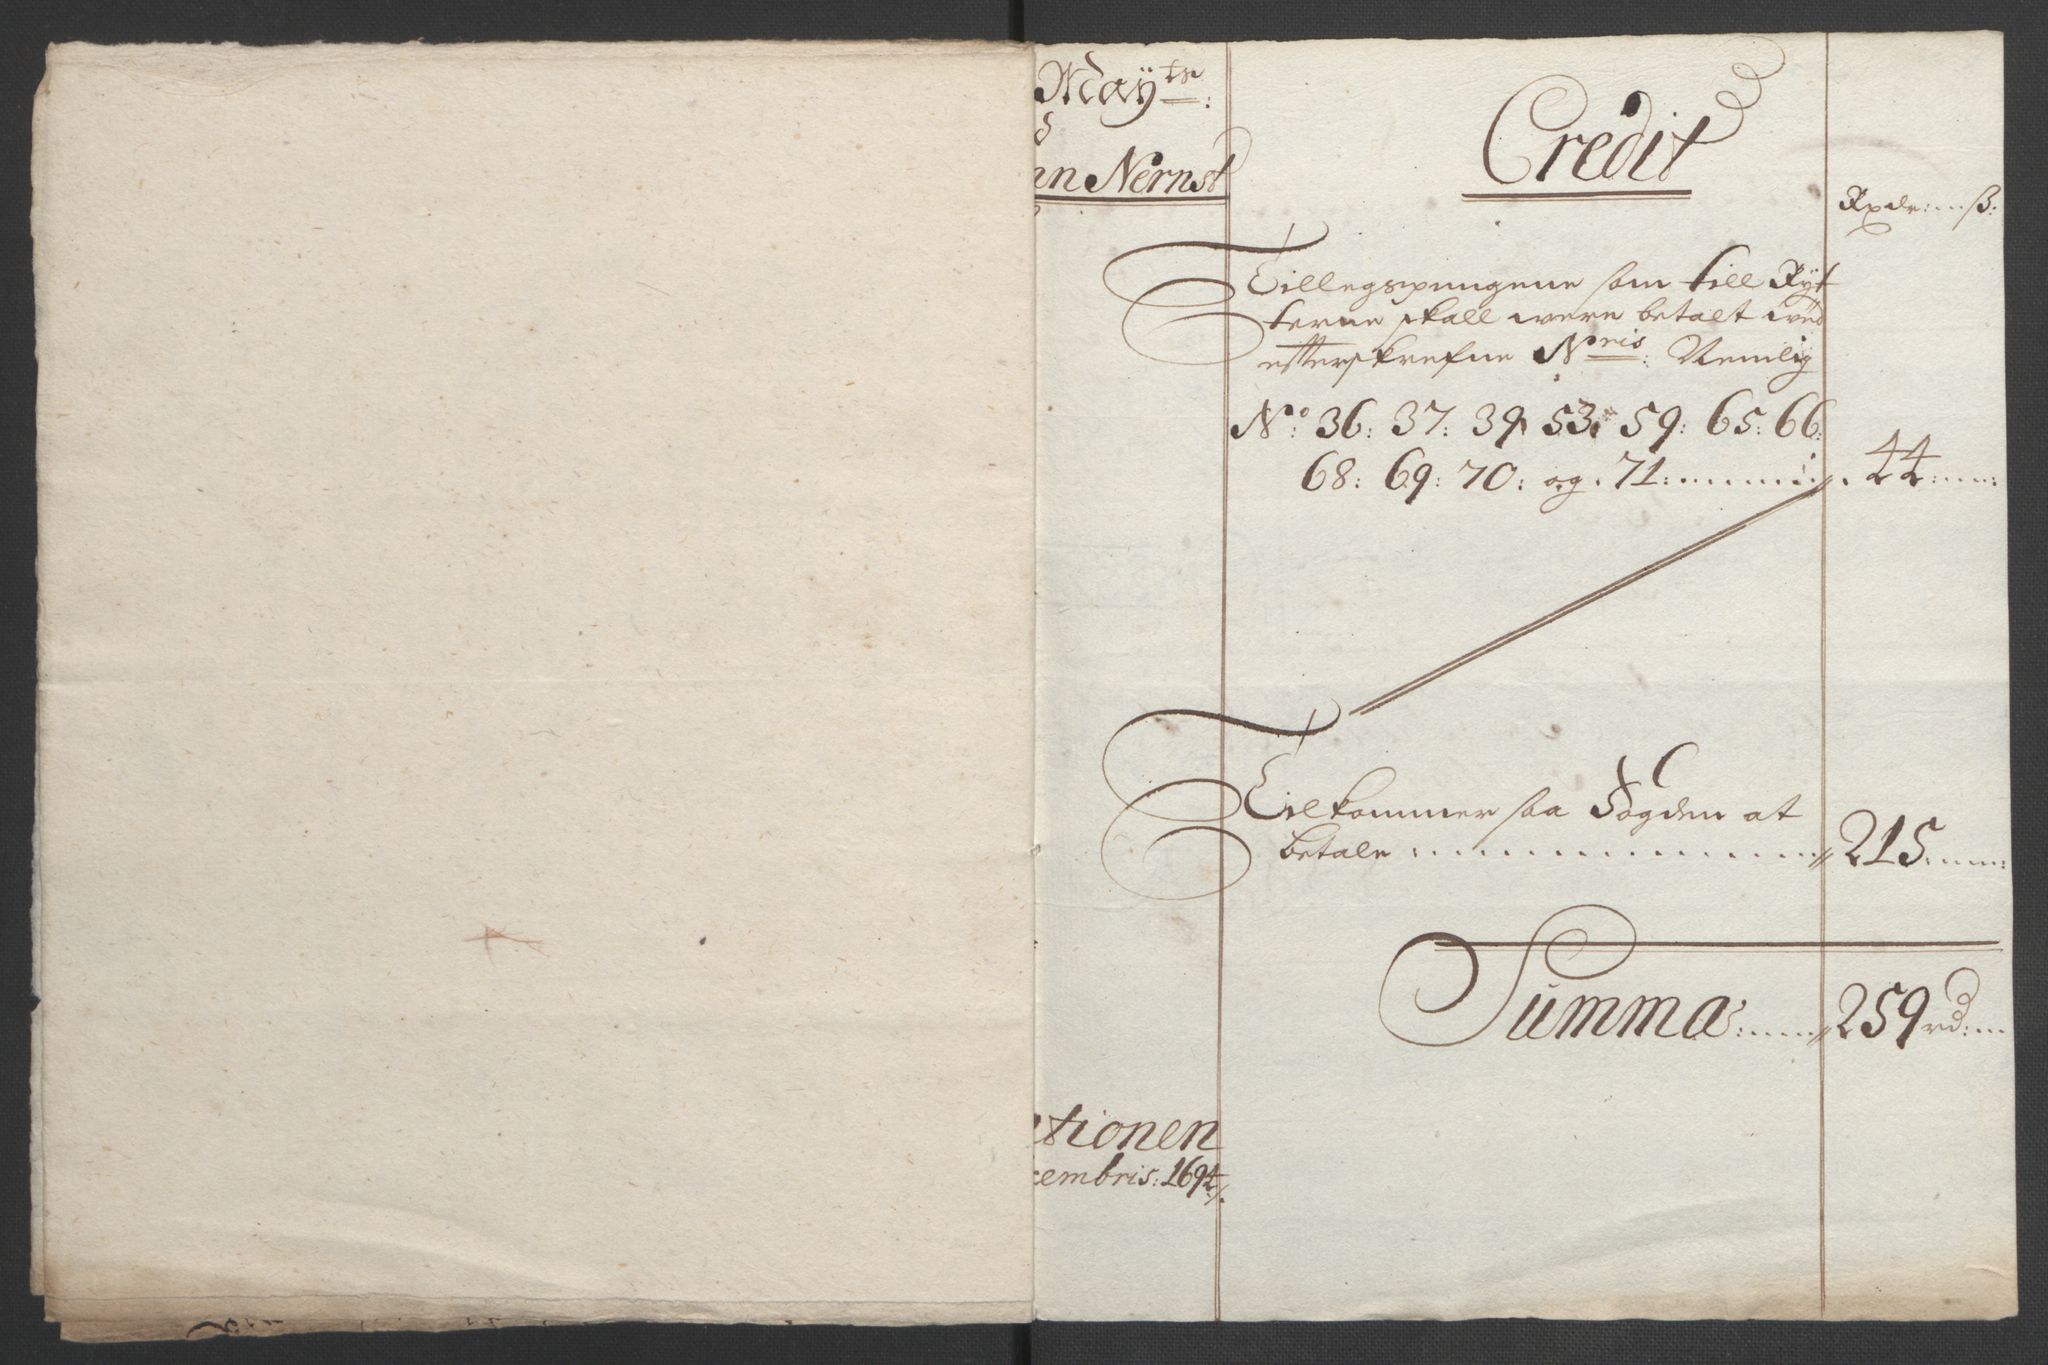 Maÿ<sup>ts</sup>:
Nernst
Credit
Rxdr: ß:
Tillegspengene som till Rÿt
terne skall were betalt wed
efterskrefne N<sup>ris</sup>: Nemlig
N<sup>o</sup>: 36: 37: 39: 53: 59: 65: 66:
68: 69: 70: og 71: 44:
Tilkommer saa Fogden at
betale 215:
Summa: 259 rd:
tionen
cembris: 1694